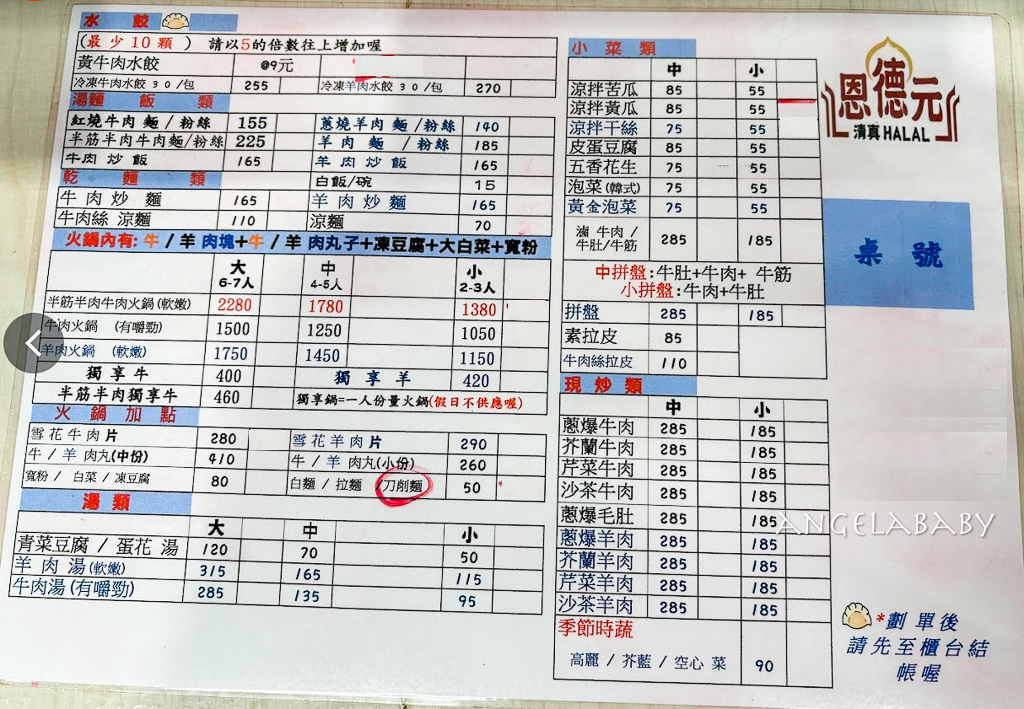 水 餃
(最少10顆) 請以5的倍數往上增加喔
黃牛肉水餃 @9元
冷凍牛肉水餃 30/包 255 冷凍羊肉水餃 30/包 270
湯麵 飯 類
紅燒牛肉 麵 /粉絲 155 蔥燒羊肉 麵 /粉絲 140
半筋半羊牛肉麵/粉絲 225 羊肉 麵 /粉絲 185
牛肉炒飯 165 羊肉炒飯 165
乾 麵 類 白飯/碗 15
牛肉炒 麵 165 羊肉炒麵 165
牛肉絲 涼麵 110 涼麵 70
火鍋內有:牛/羊 肉塊+牛/羊 肉丸子+凍豆腐+大白菜+寬粉
大 中 小
6-7人 4-5人 2-3人
半筋半肉牛肉火鍋(軟嫩) 2280 1780 1380
牛肉火鍋 (有嚼勁) 1500 1250 1050
羊肉火鍋 (軟嫩) 1750 1450 1150
獨享牛 400 獨享羊 420
半筋半肉獨享牛 460 獨享鍋=一人份量火鍋(假日不供應喔)
火鍋加點
雪花牛肉片 280 雪花羊肉片 290
牛/羊 肉丸(中份) 410 牛/羊 肉丸(小份) 260
寬粉/ 白菜/凍豆腐 80 白麵/拉麵 /刀削麵 50
湯類
大 中 小
青菜豆腐/蛋花 湯 120 70 50
羊肉湯(軟嫩) 315 165 115
牛肉湯(有嚼勁) 285 135 95
小菜類
中 小
涼拌苦瓜 85 55
涼拌黃瓜 85 55
涼拌干絲 75 55
皮蛋豆腐 85 55
五香花生 75 55
泡菜(韓式) 75 55
黃金泡菜 75 55
滷 牛肉/
牛肚/牛筋 285 185
中拼盤:牛肚+牛肉+ 牛筋
小拼盤:牛肉+牛肚
拼盤 285 185
素拉皮 85
牛肉絲拉皮 110
現炒類
中 小
蔥爆牛肉 285 185
芥蘭牛肉 285 185
芹菜牛肉 285 185
沙茶牛肉 285 185
蔥爆毛肚 285 185
蔥爆羊肉 285 185
芥蘭羊肉 285 185
芹菜羊肉 285 185
沙茶羊肉 285 185
季節時蔬
高麗/芥藍/空心菜 90
恩德元
清真HALAL
桌 號
ANGELABABY
*劃單後
請先至櫃台結
帳喔